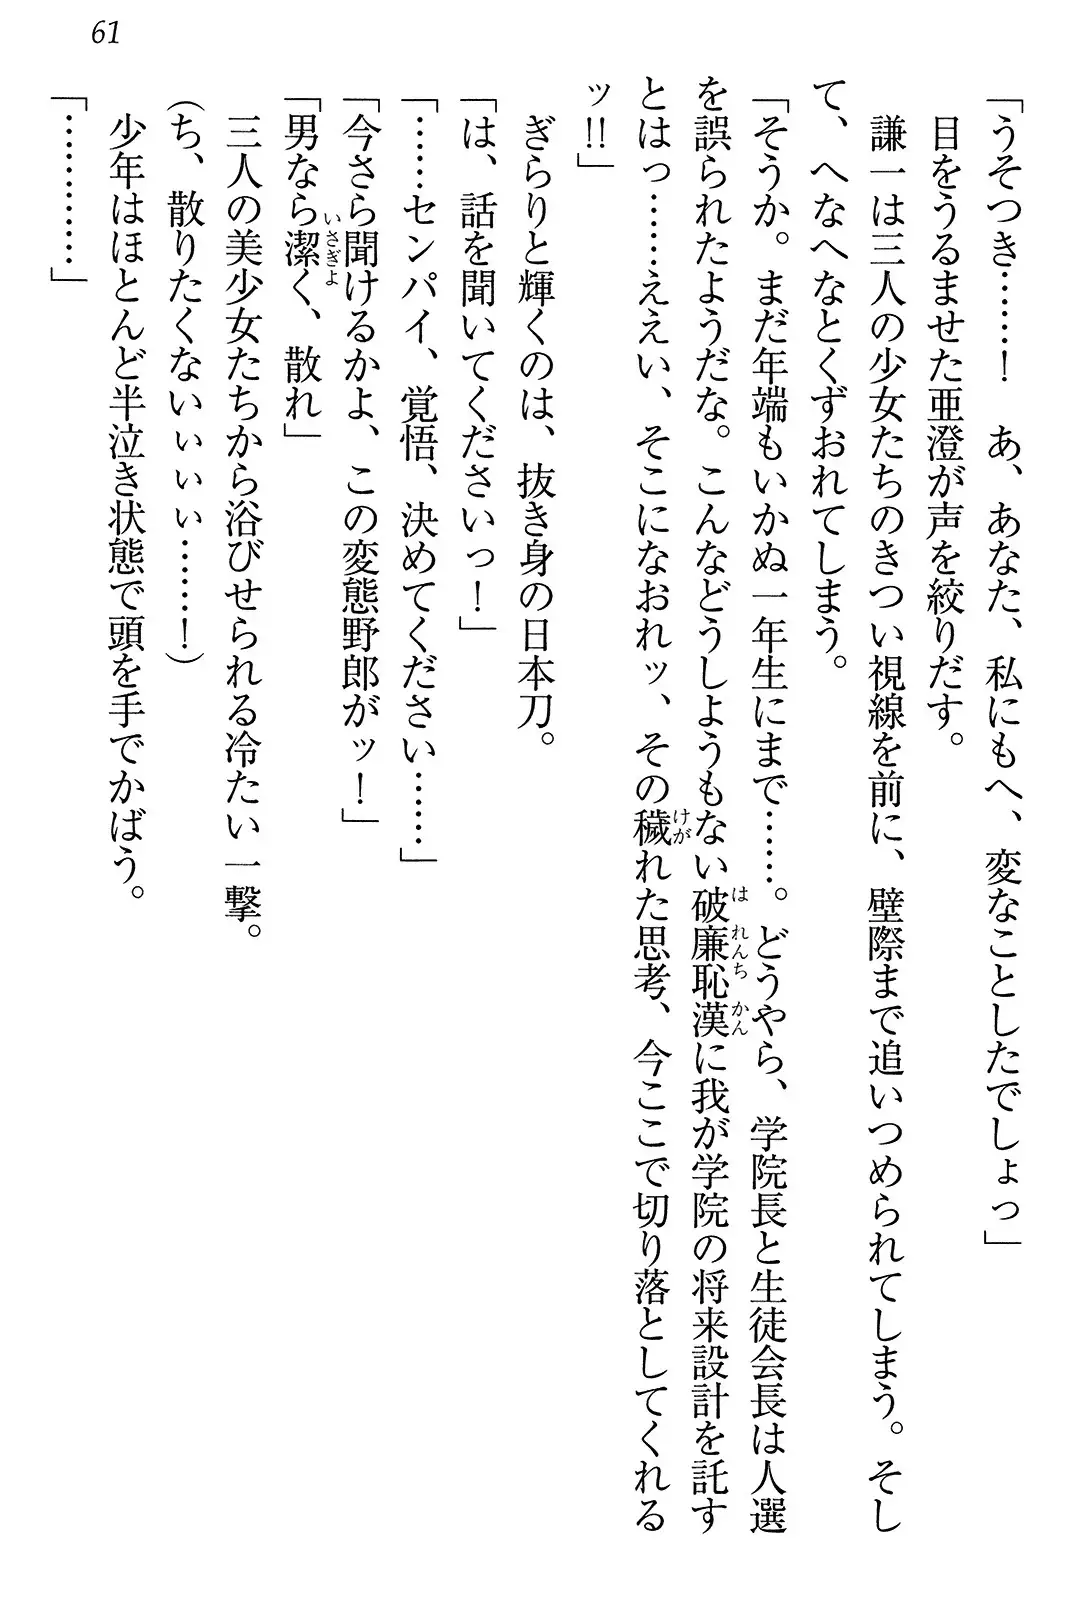 61
「うそつき………！　あ、あなた、私にもへ、変なことしたでしょっ」
目をうるませた亜澄が声を絞りだす。
謙一は三人の少女たちのきつい視線を前に、壁際まで追いつめられてしまう。そし
て、へなへなとくずおれてしまう。
「そうか。まだ年端もいかぬ一年生にまで……。どうやら、学院長と生徒会長は人選
を誤られたようだな。こんなどうしようもない破廉恥漢に我が学院の将来設計を託す
とはっ……ええい、そこになおれッ、その穢れた思考、今ここで切り落としてくれる
ッ!!」
ぎらりと輝くのは、抜き身の日本刀。
「は、話を聞いてくださいっ！」
「……センパイ、覚悟、決めてください……」
「今さら聞けるかよ、この変態野郎がッ！」
「男なら潔く、散れ」
三人の美少女たちから浴びせられる冷たい一撃。
（ち、散りたくないぃぃぃ……！）
少年はほとんど半泣き状態で頭を手でかばう。
「…………」